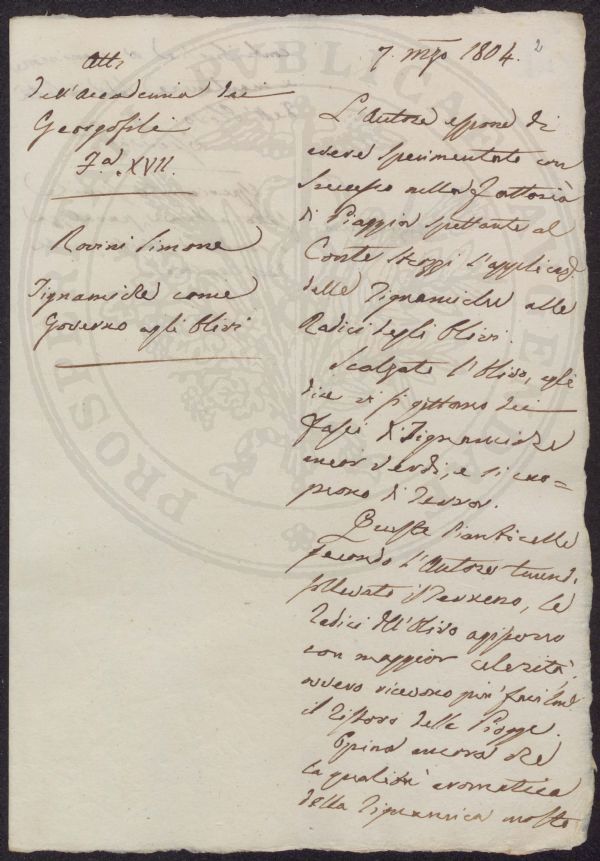 2
7. Mzo 1804.
Atti
dell'Accademia dei
Georgofili
Fa. XVII.
Rovini Simone
Tignamiche come
Governo agli Olivi
L'Autore espone di
avere sperimentato con
successo nella Fattoria
di Piaggia spettante al
Conte Strozzi l'applicaz
delle Tignamiche alle
Radici degli Olivi.
Scalzato l'Olivo, egli
dice vi si gettano dei
Fasci di Tignamiche
ancor verdi, e si cuo=
prono di Terra.
Queste Pianticelle
secondo l'Autore tenend.
sollevato il Terreno, le
Radici dell'Olivo agiscono
con maggior celerità,
ovvero ricevono più facilmte
il ristoro delle Piogge.
Opina ancora che
la qualità aromatica
della Tignamica molto
PROSPERITATI PUBLICAE AUGENDAE